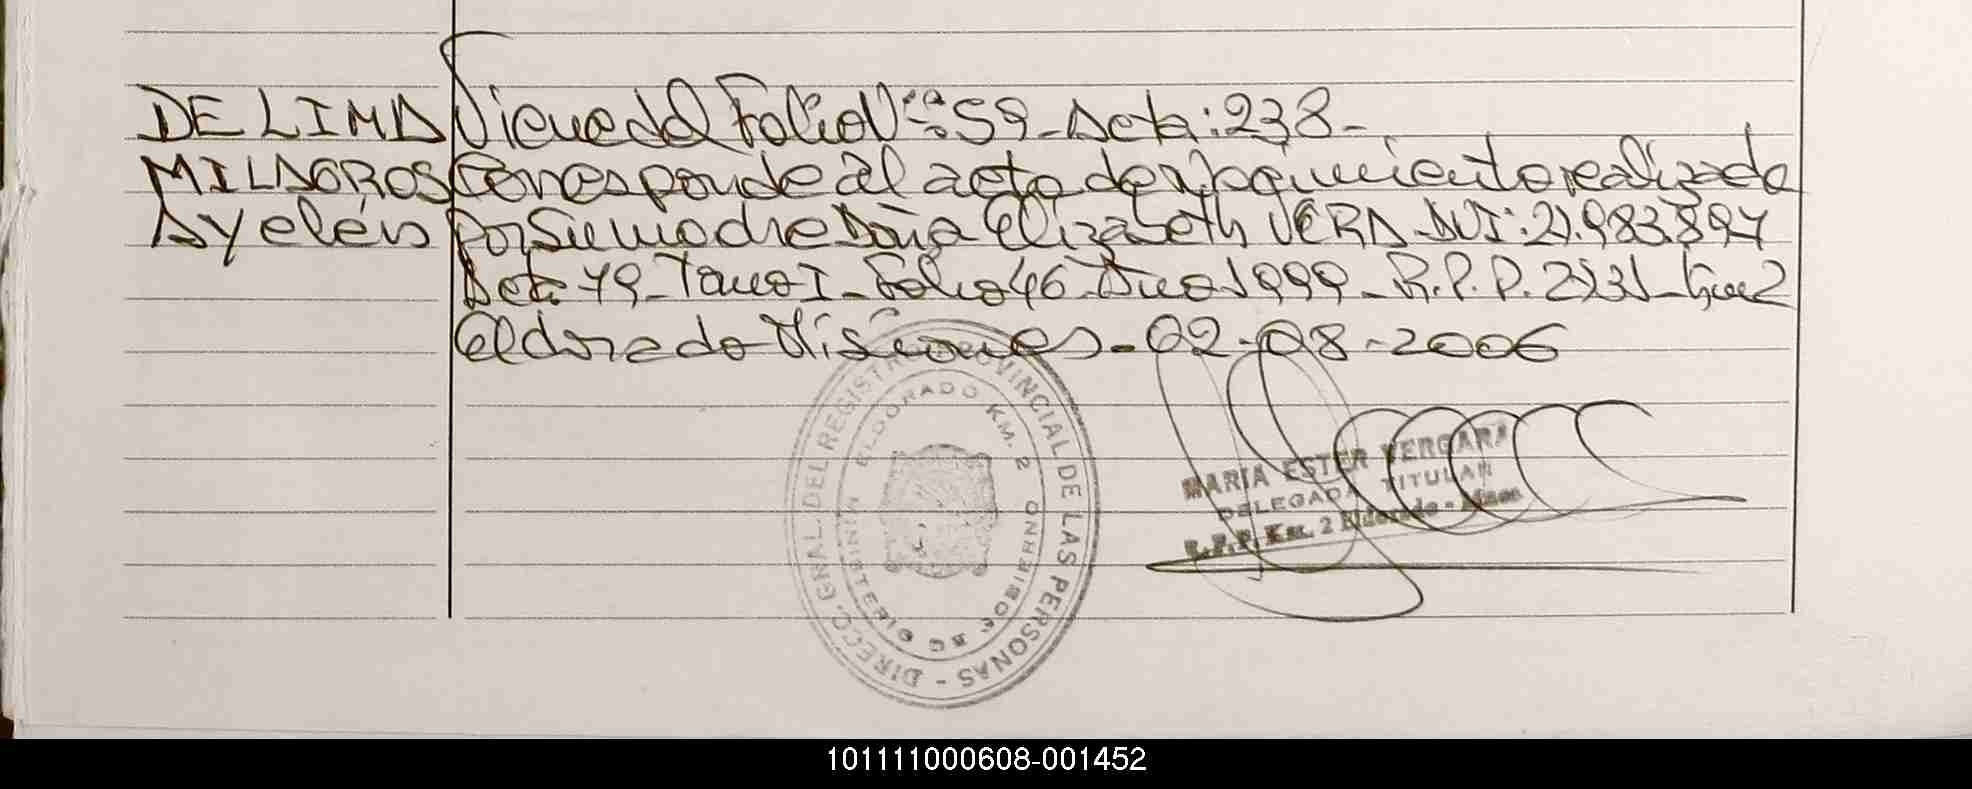 DE LIMA
MILAGROS
Ayelén
Viene del Folio Nº 59 - Acta: 238 -
Corresponde al acta de reconocimiento realizado
por su madre Doña Elizabeth VERA - DNI: 21.983.897
Acta 79 - Tomo I - Folio 46 - Año 1999 - R.P.P. 2231 - Km 2
Eldorado Misiones - 02-08-2006
DIRECC. GRAL. DEL REGISTRO PROVINCIAL DE LAS PERSONAS -
ELDORADO KM. 2
MINISTERIO DE GOBIERNO
MARIA ESTER VERGARA
DELEGADA TITULAR
R.P.P. Km. 2 Eldorado - Mnes
101111000608-001452